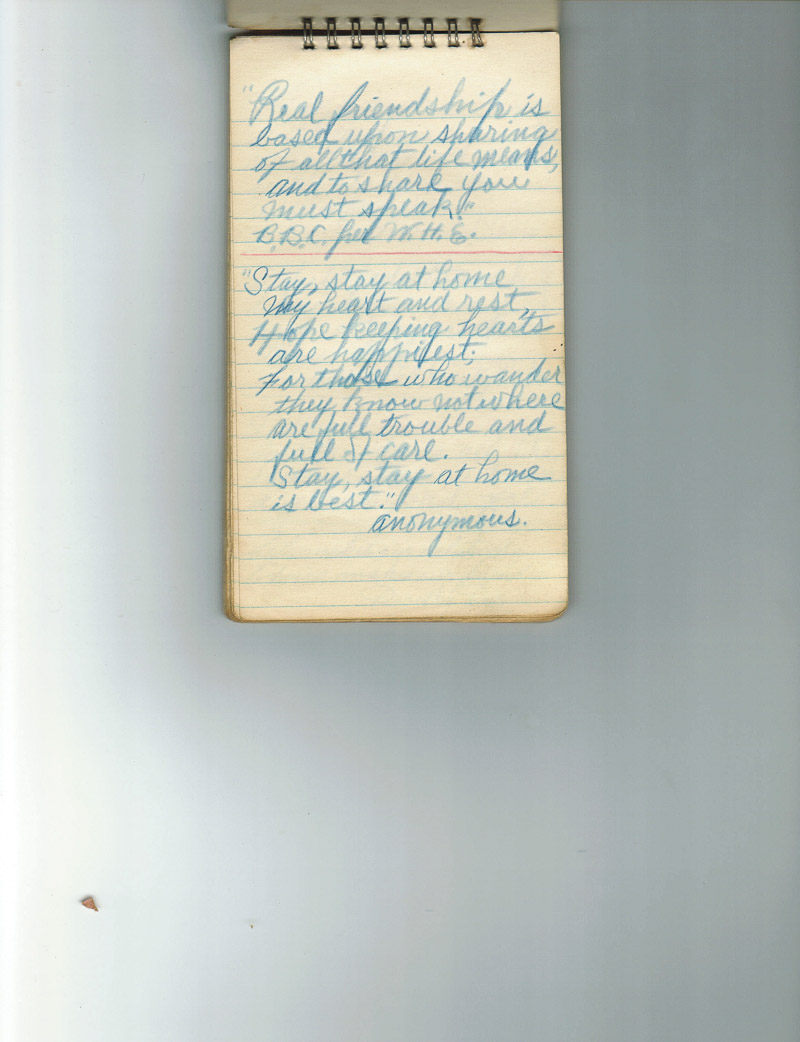 "Real friendship is
based upon sharing
of all that life means,
and to share you
must speak."
B.B.C. per W.H.E.
"Stay, stay at home
my heart and rest,
Hope keeping hearts
are happiest;
For those who wander
they know not where
are full trouble and
full of care.
Stay, stay at home
is best."
anonymous.